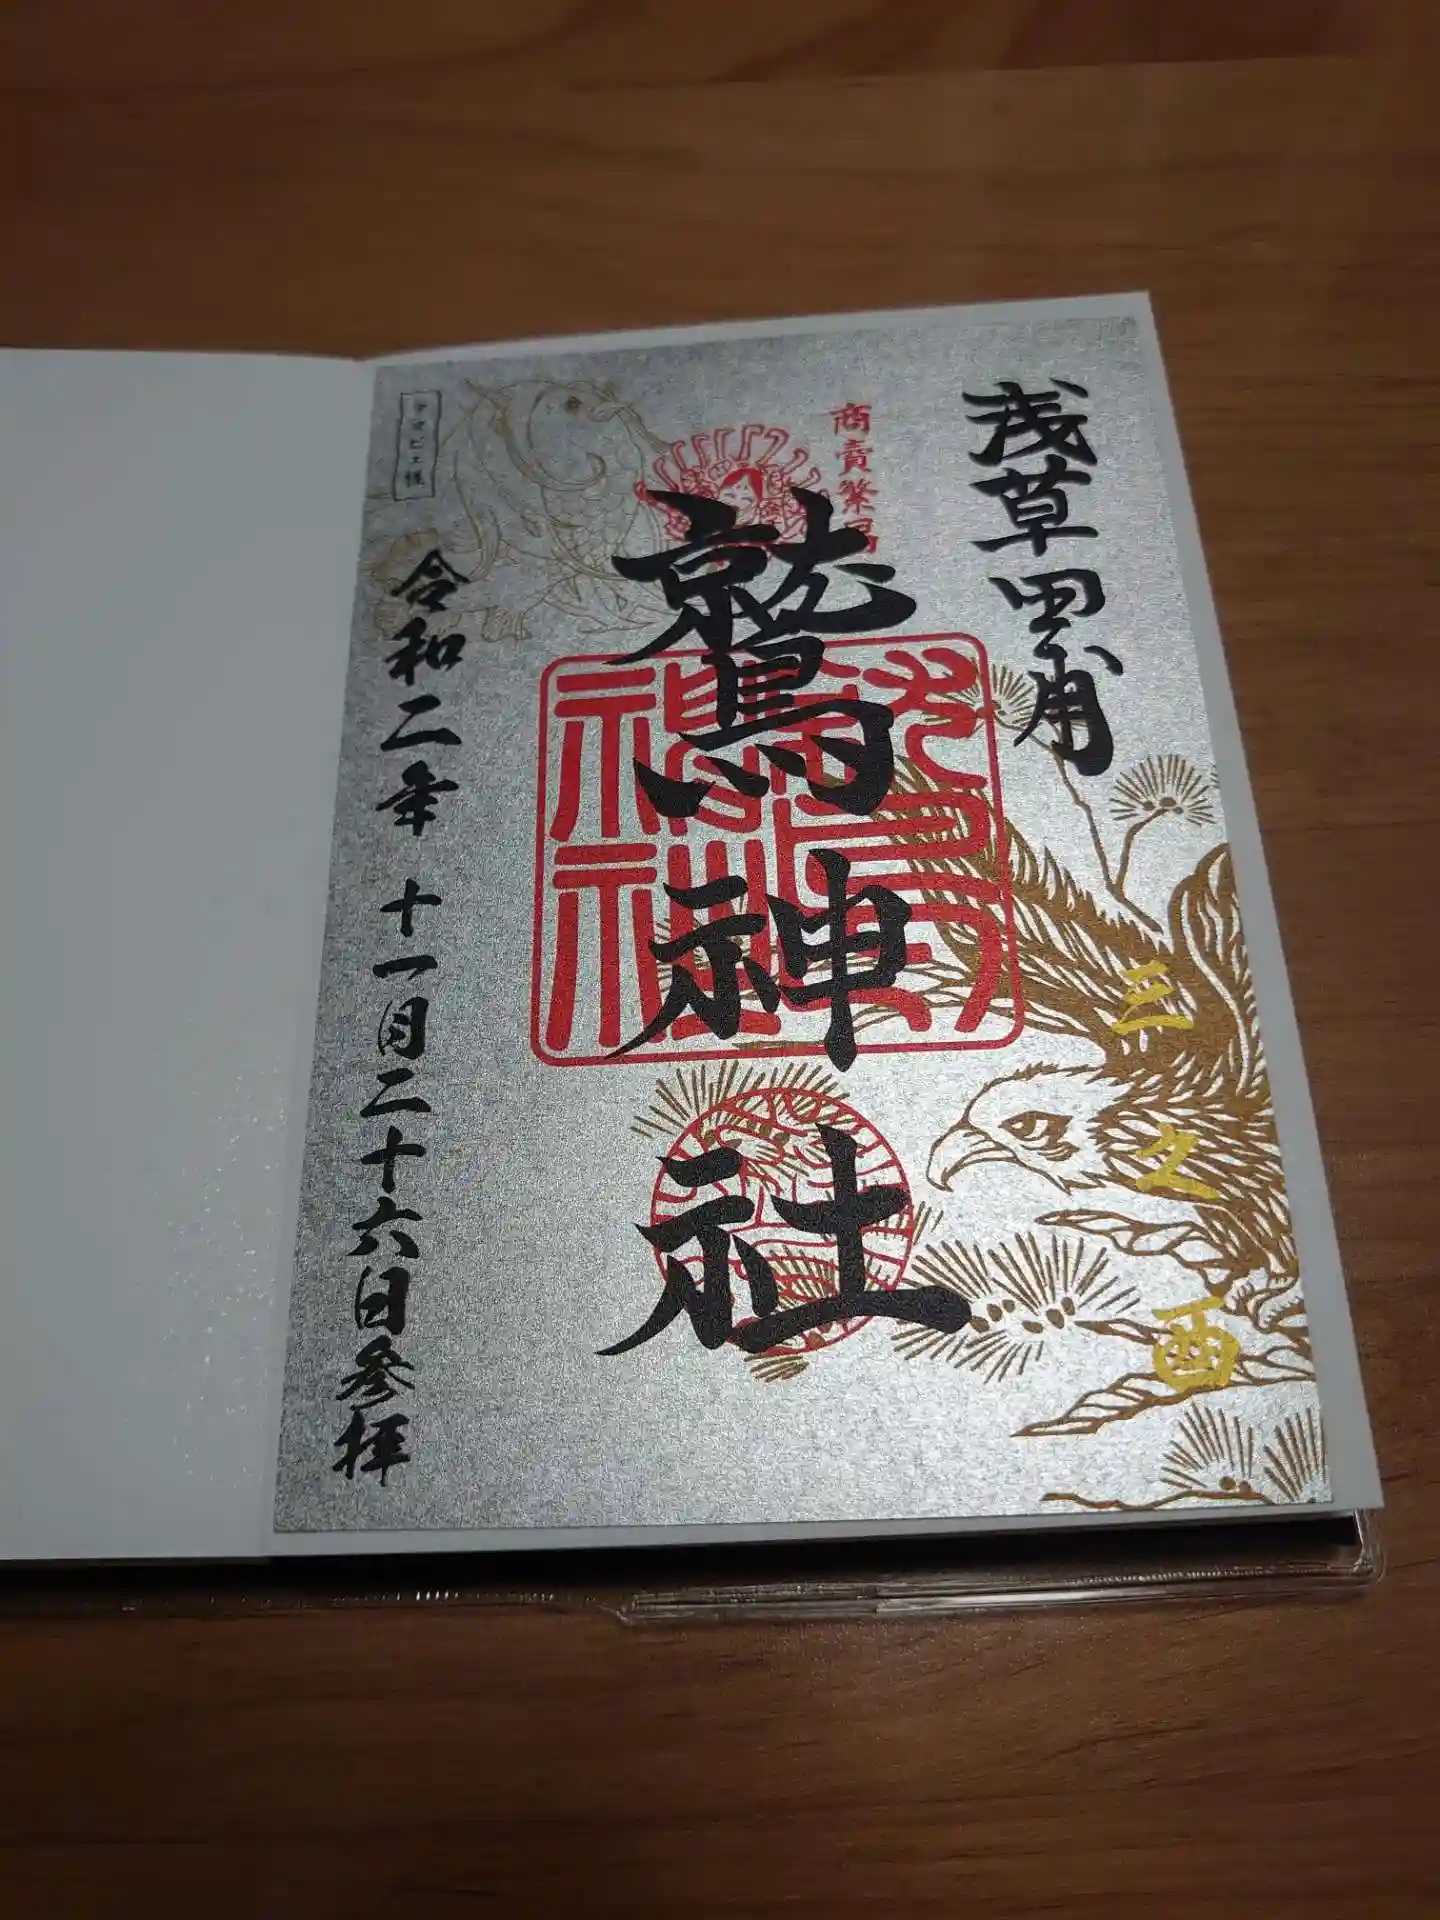 浅草田甫
三之酉
商賣繁昌
鷲神社
アマビエ様
令和二年 十一月二十六日参拝